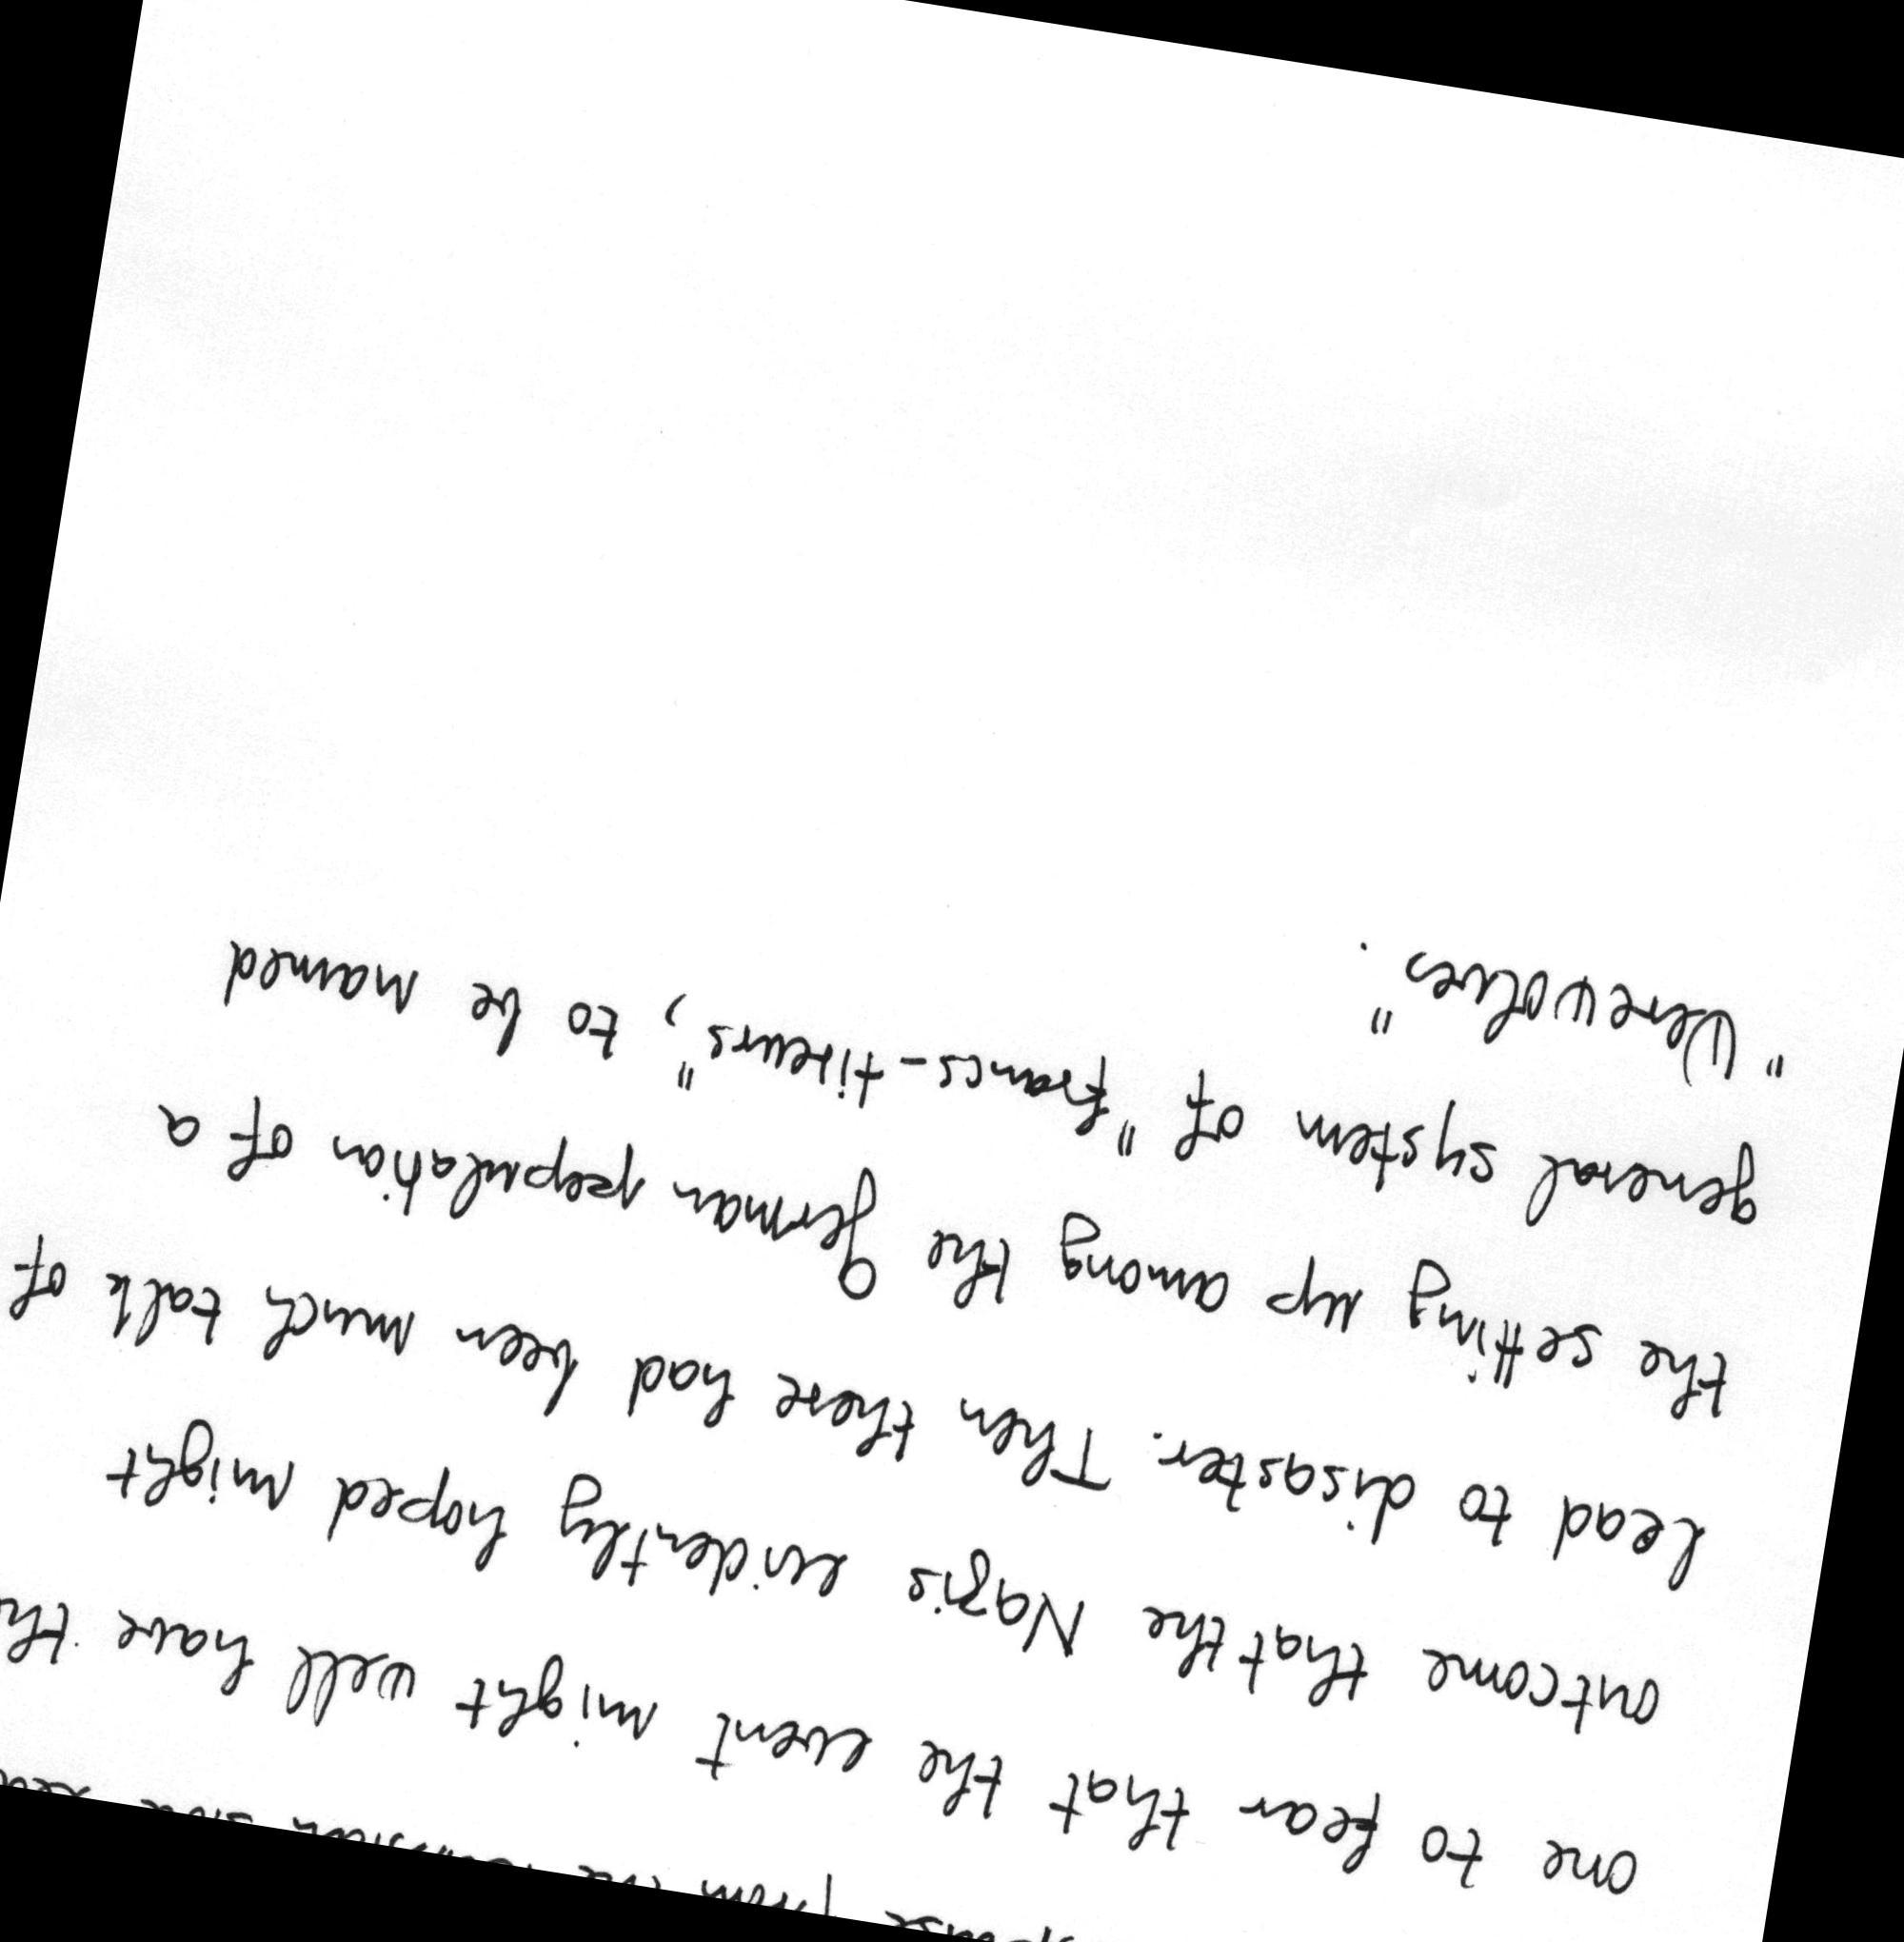 from the
one to fear that the event might well have
outcome that the Nazis evidently hoped might
lead to disaster. Then there had been much talk of
the setting up among the German population of a
general system of "francs-tireurs", to be named
"Werewolves".